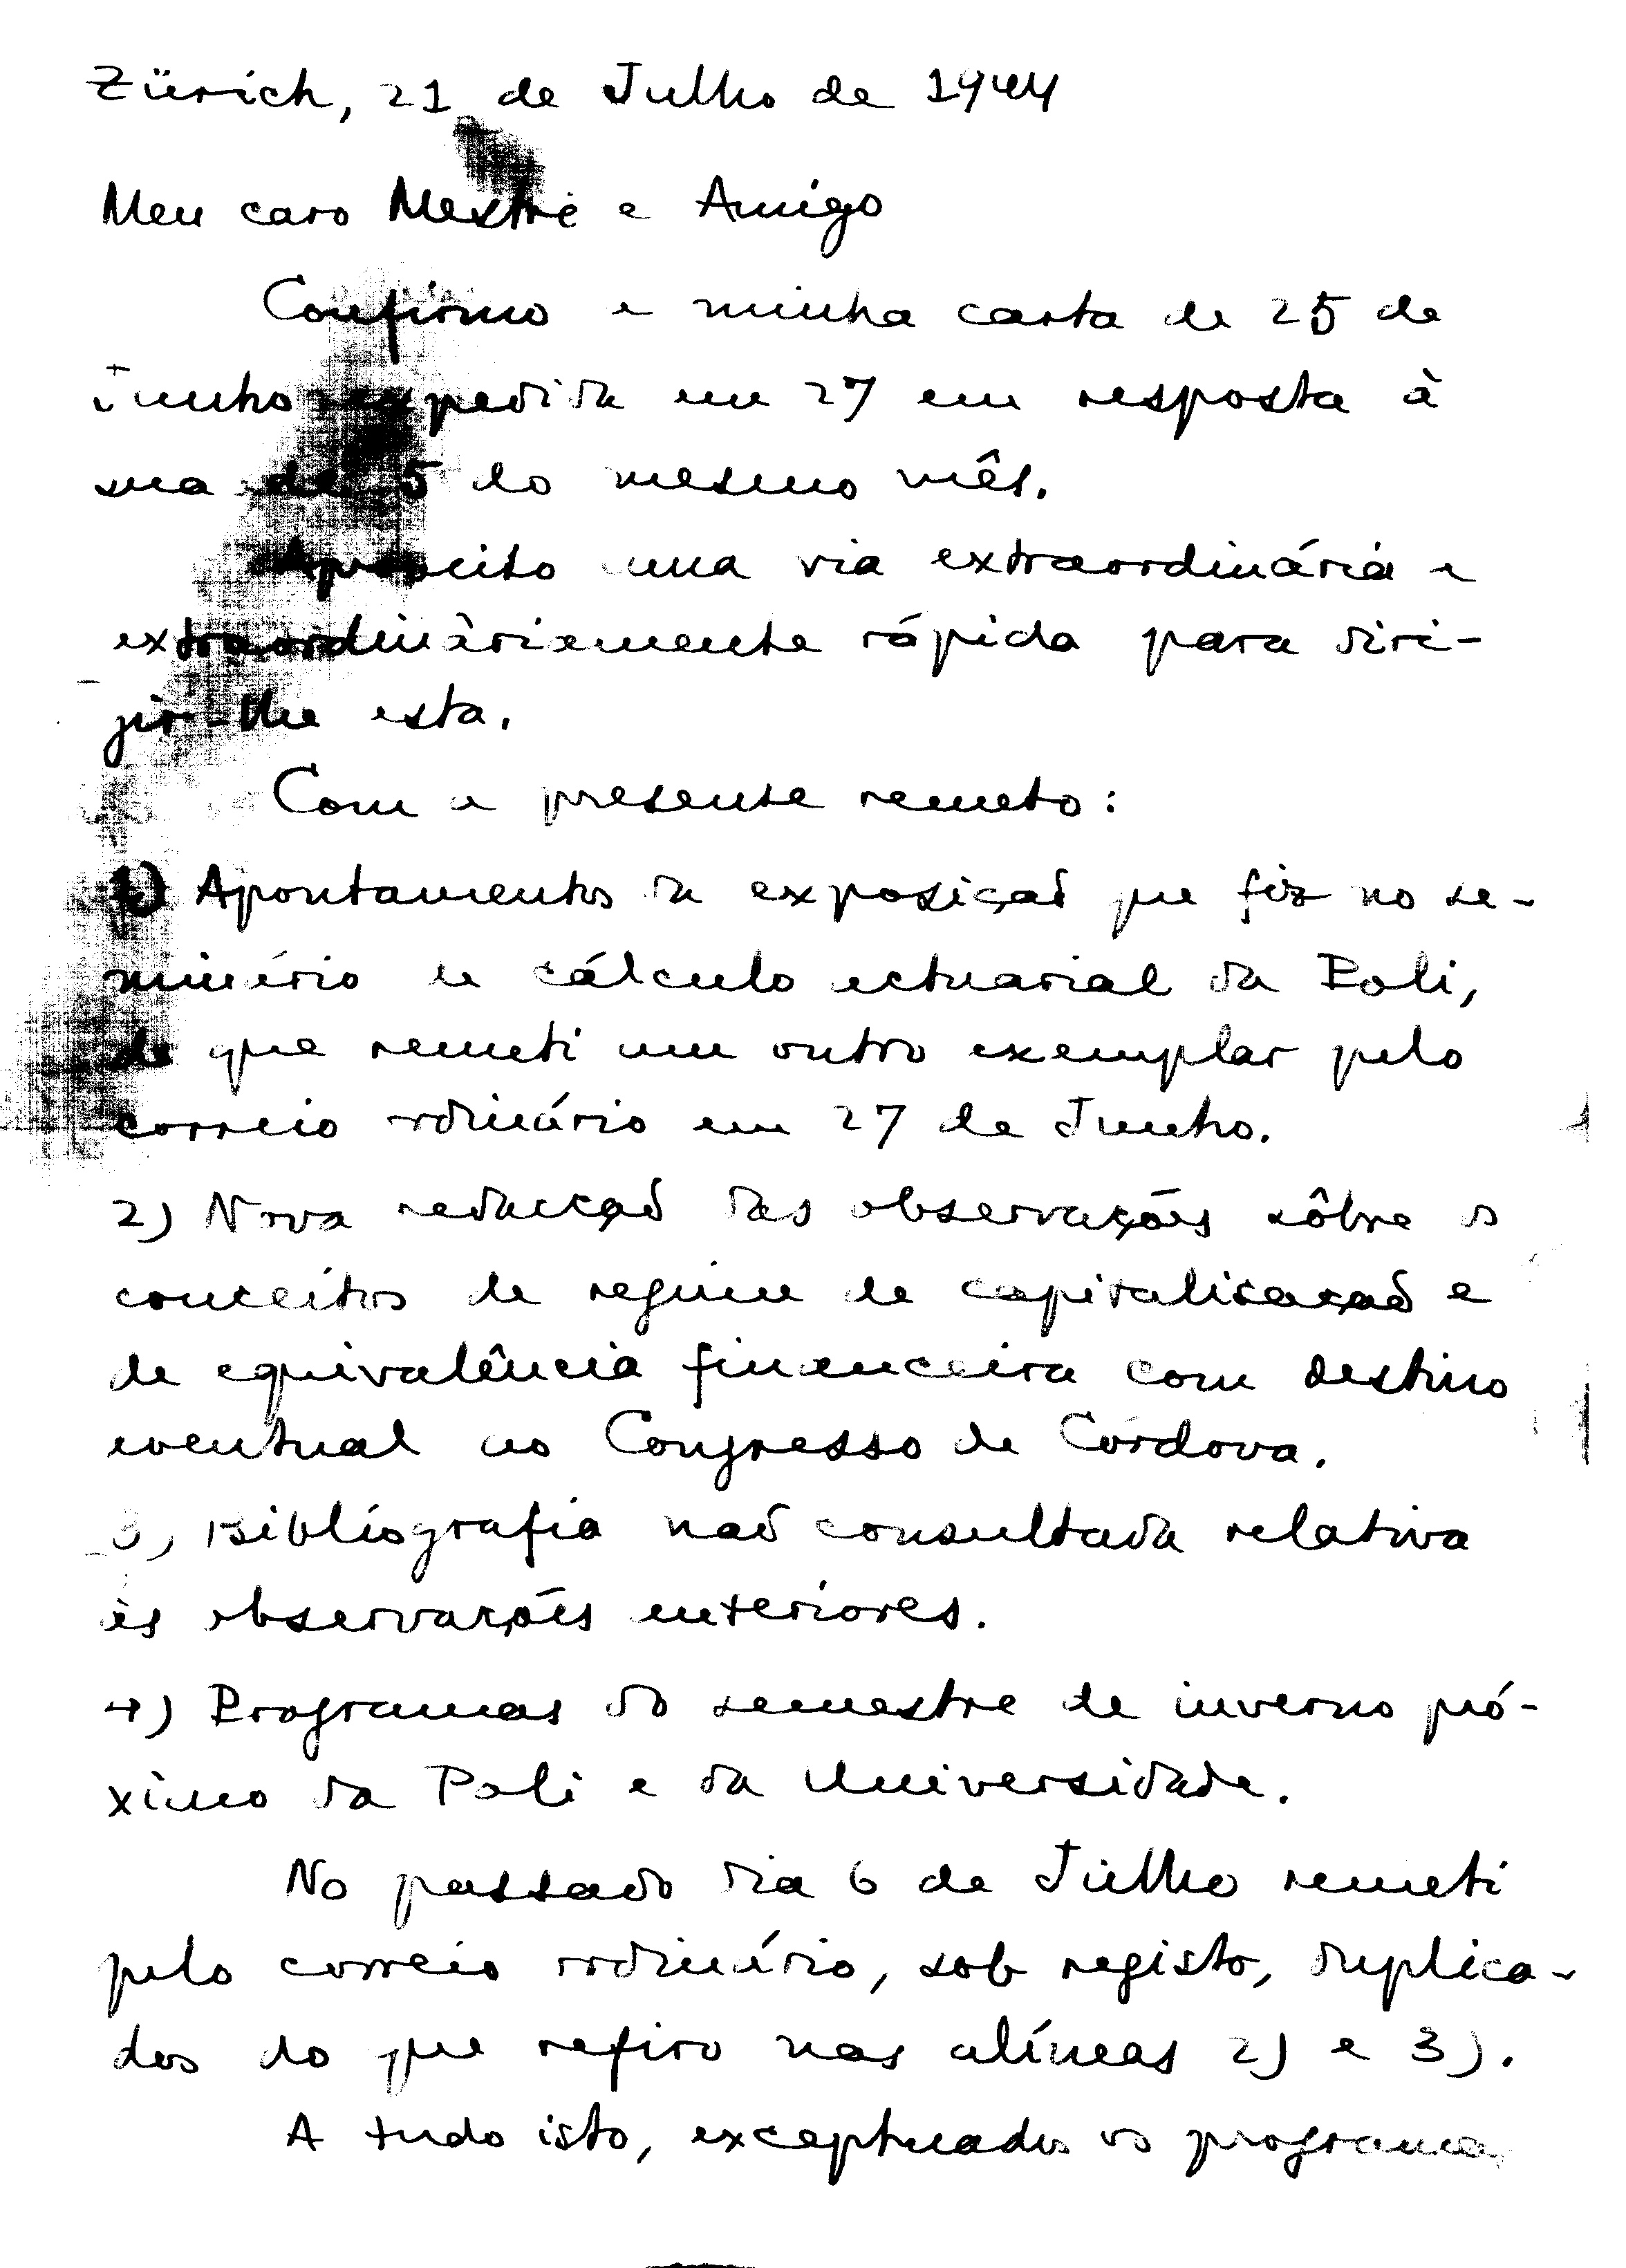 Zürich, 21 de Julho de 1944
Meu caro Mestre e Amigo
Confirmo a minha carta de 25 de
Junho expedida em 27 em resposta à
sua de 5 do mesmo mês.
Aproveito uma via extraordinária e
extraordinàriamente rápida para diri-
gir-lhe esta.
Com a presente remeto:
1) Apontamentos da exposição que fiz no se-
minário de cálculo actuarial da Poli,
de que remeti um outro exemplar pelo
correio ordinário em 27 de Junho.
2) Nova redacção das observações sôbre os
conceitos de regime de capitalisação e
de equivalência financeira com destino
eventual ao Congresso de Córdova.
3) Bibliografia não consultada relativa
às observações anteriores.
4) Programas do semestre de inverno pró-
ximo da Poli e da Universidade.
No passado dia 6 de Julho remeti
pelo correio ordinário, sob registo, duplica-
dos do que refiro nas alíneas 2) e 3).
A tudo isto, exceptuados os programas